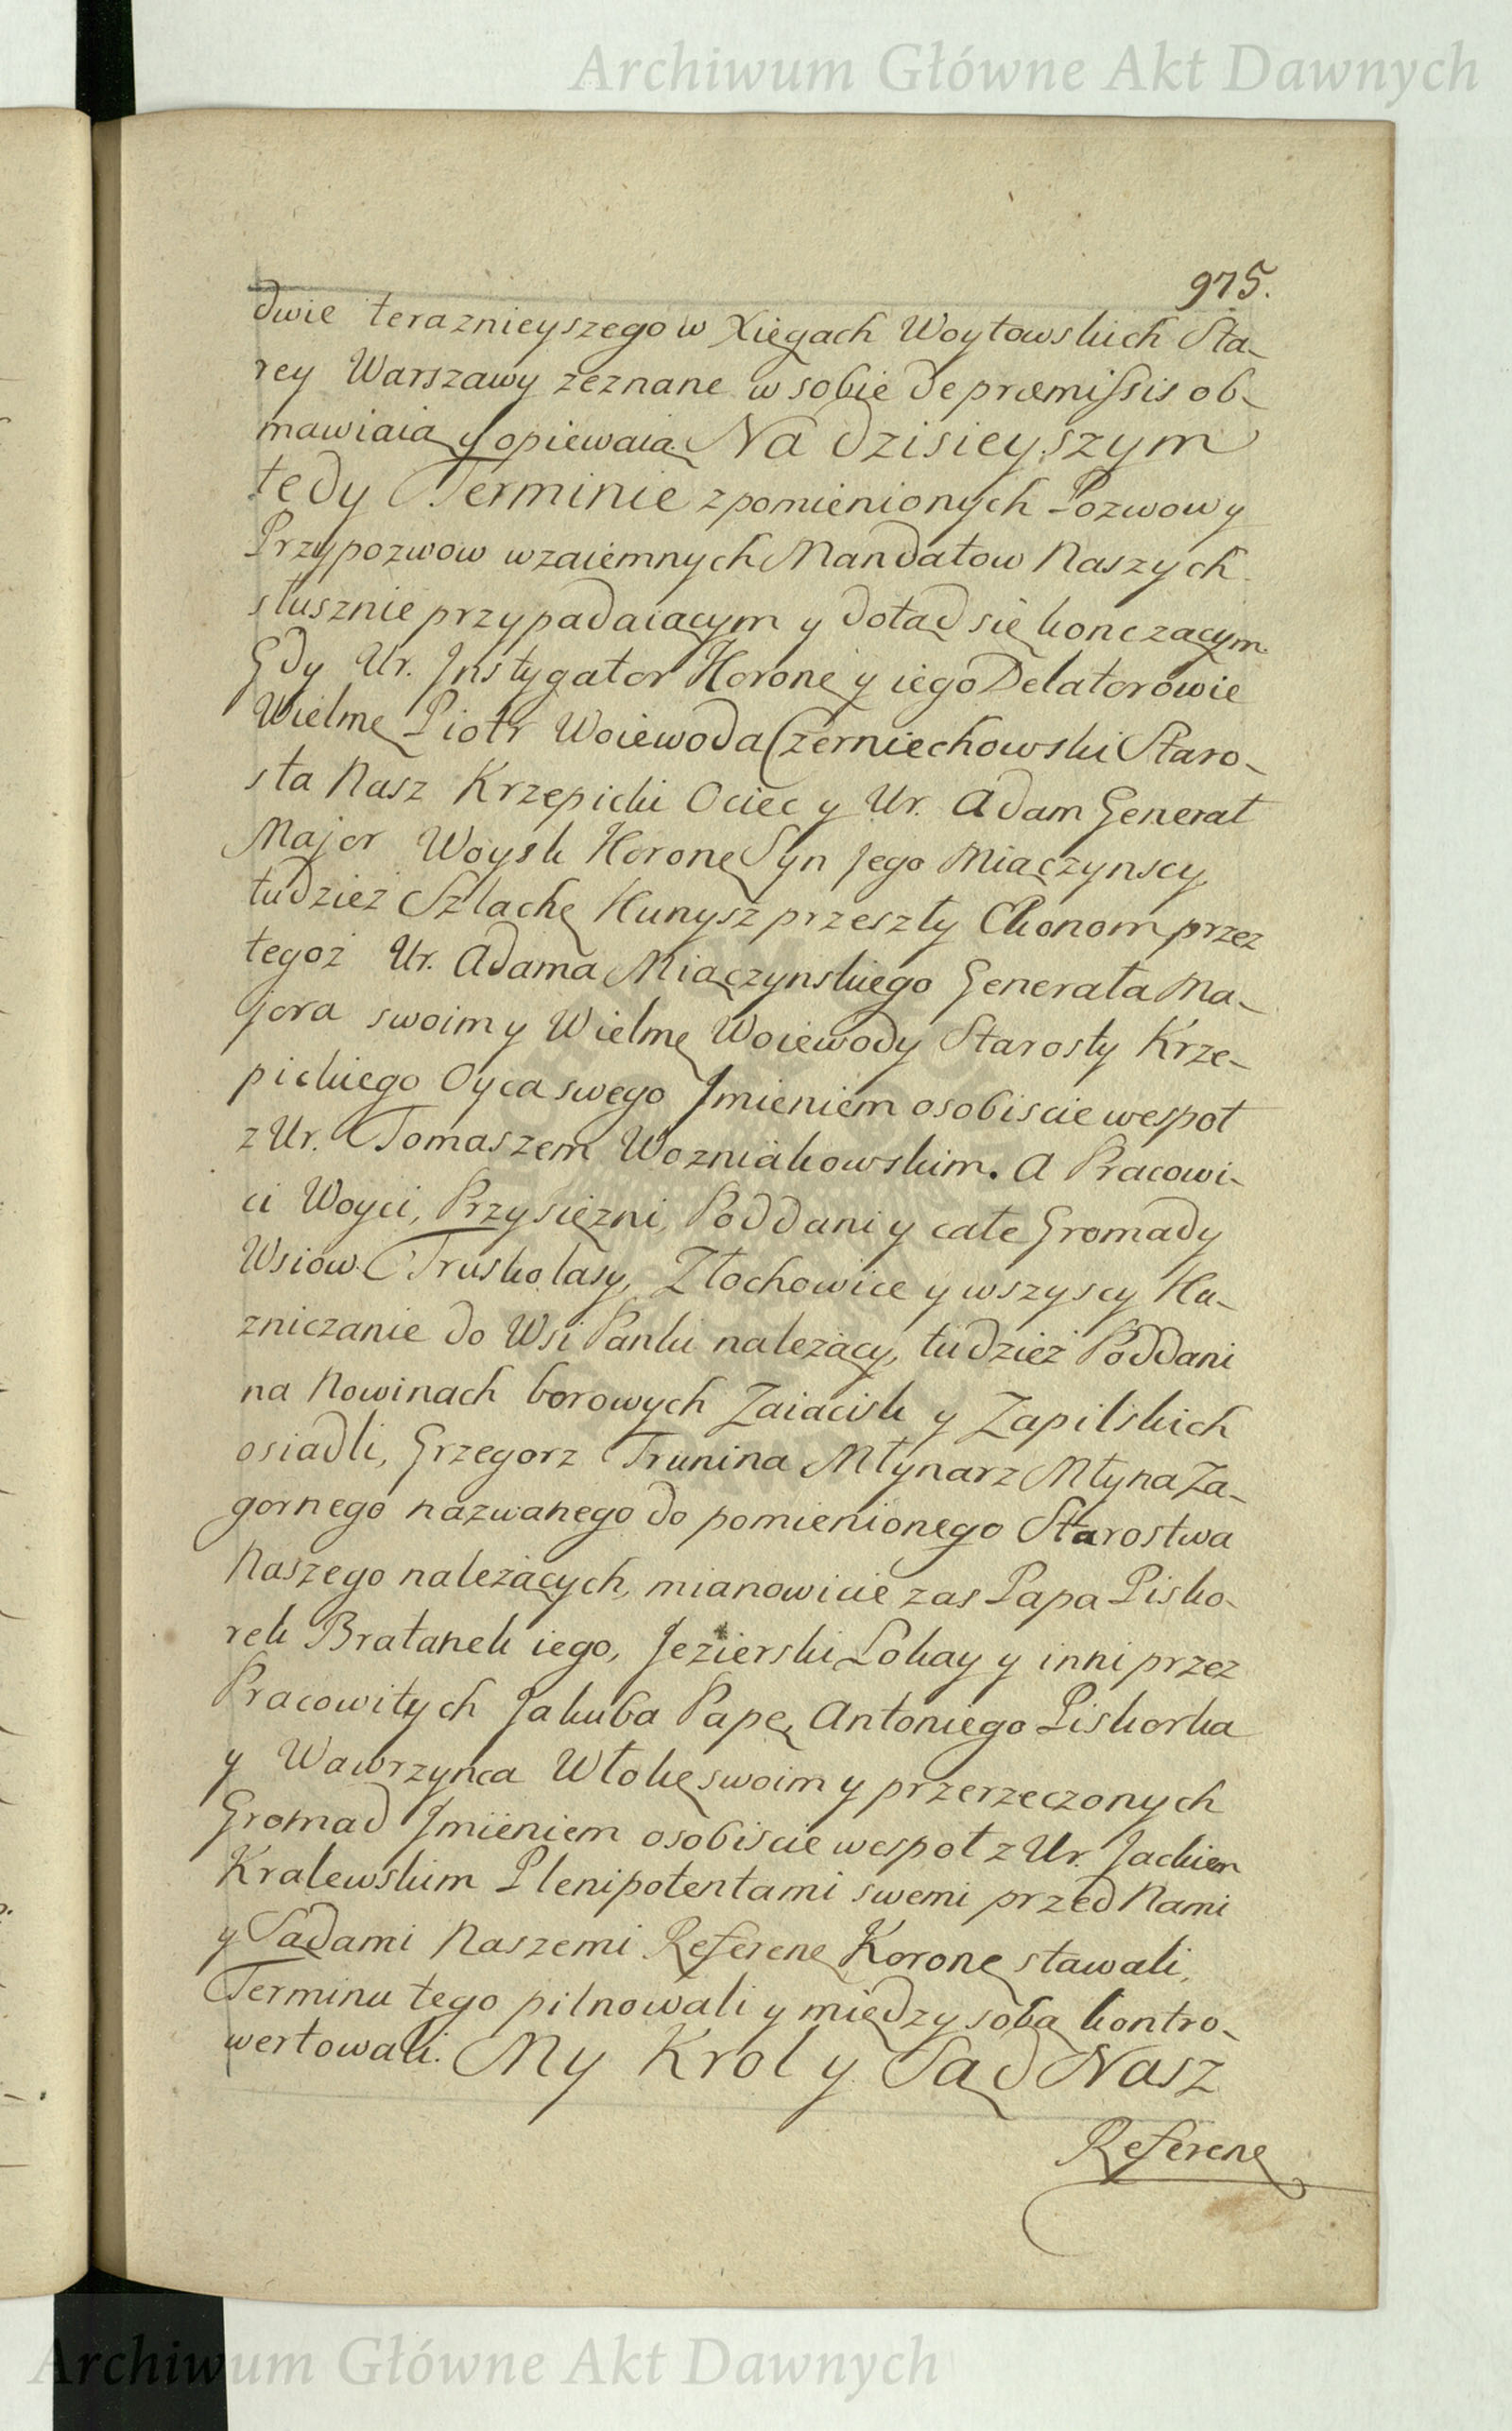 Archiwum Główne Akt Dawnych
975.
dwie teraznieyszego w Xięgach Woytowskich Sta-
rey Warszawy zeznane w sobie de præmissis ob-
mawiaią y opiewaią. Na dzisieyszym
tedy Terminie z pomienionych Pozwow y
Przypozwow wzaiemnych Mandatow Naszych
słusznie przypadaiącym y dotąd się konczącym.
Gdy Ur. Instygator Koronę y iego Delatorowie
Wielmę Piotr Woiewoda Czerniechowski Staro-
sta Nasz Krzepicki Ociec y Ur. Adam Generał
Major Woysk Koronę Syn Jego Miączynscy,
tudzież Szlachę Kunysz przeszły Ekonom przez
tegoż Ur. Adama Miączynskiego Generała Ma-
jora swoim y Wielmę Woiewody Starosty Krze-
pickiego Oyca swego Jmieniem osobiscie wespoł
z Ur. Tomaszem Wozniakowskim. A Pracowi-
ci Woyci, Przysięzni, Poddani y całe Gromady
Wsiow Truskolasy, Złochowice y wszyscy Ku-
zniczanie do Wsi Panki należący, tudzież Poddani
na Nowinach borowych Zaiacisk y Zapilskich
osiadli, Grzegorz Trunina Młynarz Młyna Za-
gornego nazwanego do pomienionego Starostwa
Naszego należących, mianowicie zas Papa Pisko-
rek Bratanek iego, Jezierski Lokay y inni przez
Pracowitych Jakuba Papę, Antoniego Piskorka
y Wawrzynca Włokę swoim y przerzeczonych
Gromad Jmieniem osobiscie wespoł z Ur. Jackiem
Kralewskim Plenipotentami swemi przed Nami
y Sądami Naszemi Referenę Koronę stawali,
Terminu tego pilnowali y między sobą kontro-
wertowali. My Krol y Sąd Nasz
Referenę
Archiwum Główne Akt Dawnych